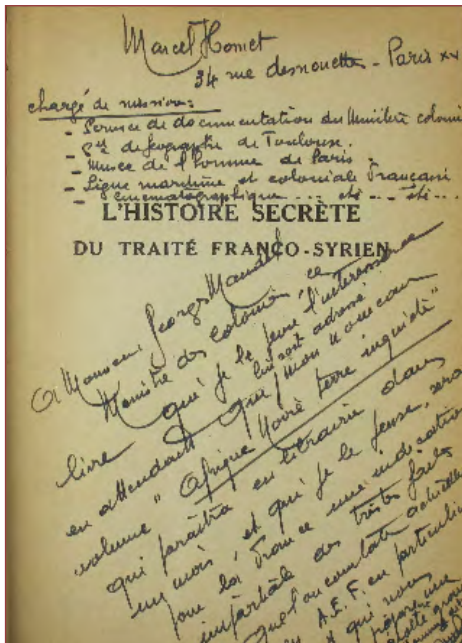 Marcel Homet
34 rue desnouettes - Paris XV
chargé de mission:
- Service de documentation du Ministère coloni
- Sté de géographie de Toulouse.
- Musée de l'homme de Paris.
- Ligue maritime et coloniale Français
- cinématographique ... etc .. etc...
L'HISTOIRE SECRÈTE
DU TRAITÉ FRANCO-SYRIEN
A Monsieur Georges Mandel
Ministre des colonies, ce
livre qui je le pense l'intéressera
lui soit adressé
en attendant que mon nouveau
volume "Afrique Noire terre inquiète"
qui paraîtra en librairie dans
un mois, et qui je le pense, sera
pour la France une indication
impartiale des tristes faits
que l'on constate actuelle
A.E.F. en particulier
et qui nous
prépare une